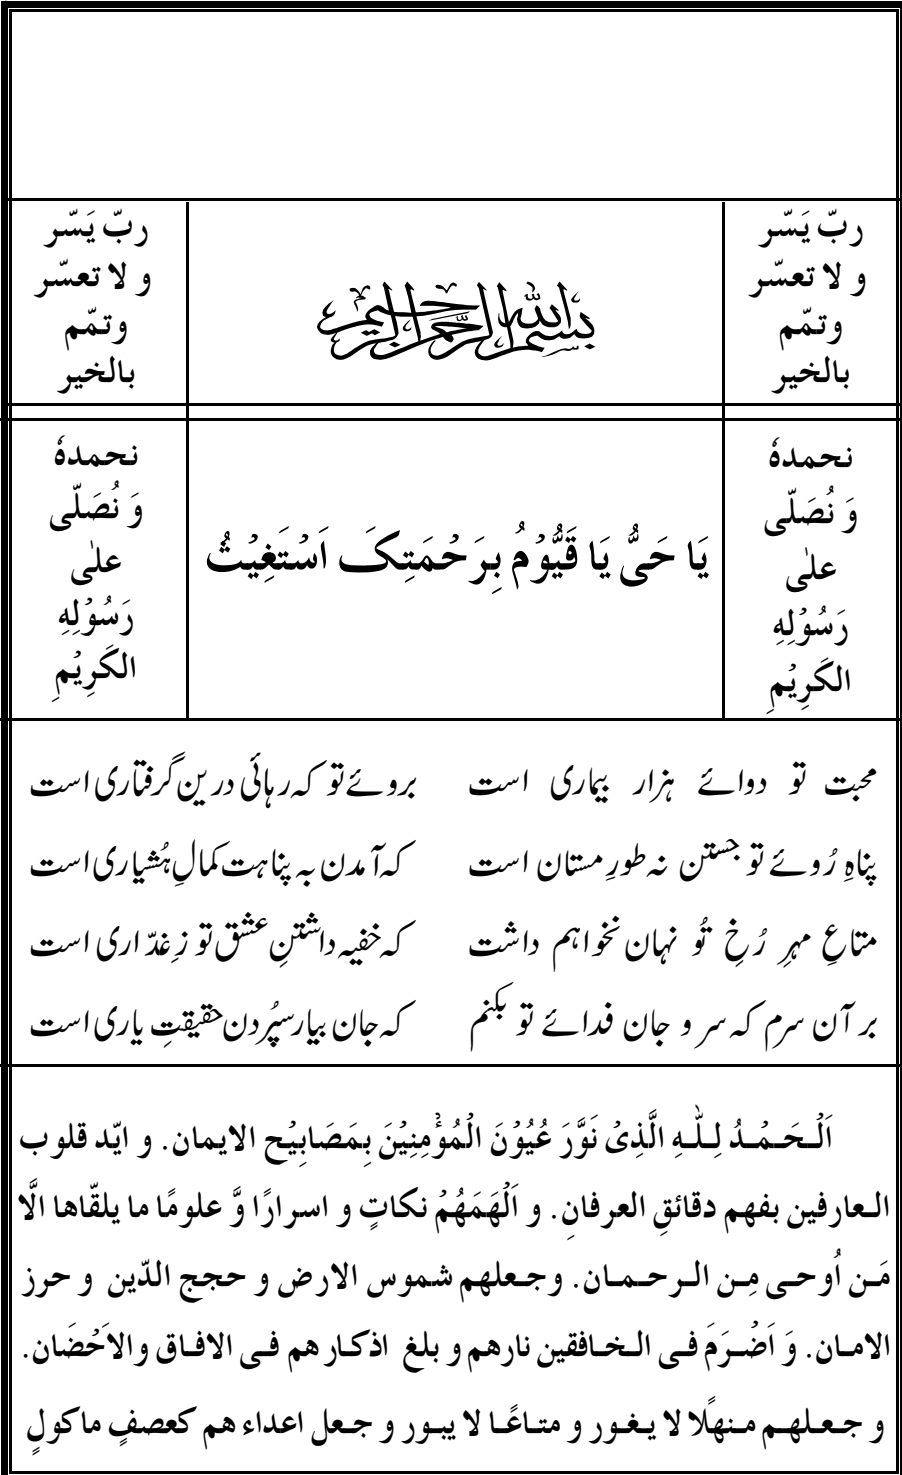 ربّ يَسّر
و لا تعسّر
وتمّم
بالخير
بسم الله الرحمن الرحيم
ربّ يَسّر
و لا تعسّر
وتمّم
بالخير
نحمدهٗ
وَ نُصَلّی
علٰی
رَسُوْلِهِ
الکَرِيْمِ
يَا حَیُّ يَا قَيُّوْمُ بِرَحْمَتِکَ اَسْتَغِيْثُ
نحمدهٗ
وَ نُصَلّی
علٰی
رَسُوْلِهِ
الکَرِيْمِ
محبت تو دوائے ہزار بیماری است بروئے تو کہ رہائی درین گرفتاری است
پناہِ رُوئے تو جستن نہ طورِ مستان است کہ آمدن بہ پناہت کمالِ ہُشیاری است
متاعِ مہرِ رُخِ تُو نہان نخواہم داشت کہ خفیہ داشتنِ عشق تو زِ غدّاری است
بر آن سرم کہ سر و جان فدائے تو بکنم کہ جان بیار سپُردن حقیقتِ یاری است
اَلْحَمْدُ لِلّٰهِ الَّذِیْ نَوَّرَ عُيُوْنَ الْمُؤْمِنِيْنَ بِمَصَابِيْح الايمان. و ايّد قلوب
العارفين بفهم دقائقِ العرفانِ. و اَلْهَمَهُمْ نکاتٍ و اسرارًا وَّ علومًا ما يلقّاها الَّا
مَن اُوحی مِن الرحمان. وجعلهم شموس الارض و حجج الدّين و حرز
الامان. وَ اَضْرَمَ فی الخافقين نارهم و بلغ اذکارهم فی الافاق والاَحْضَان.
و جعلهم منهلًا لا يغور و متاعًا لا يبور و جعل اعداء هم کعصفٍ ماکولٍ